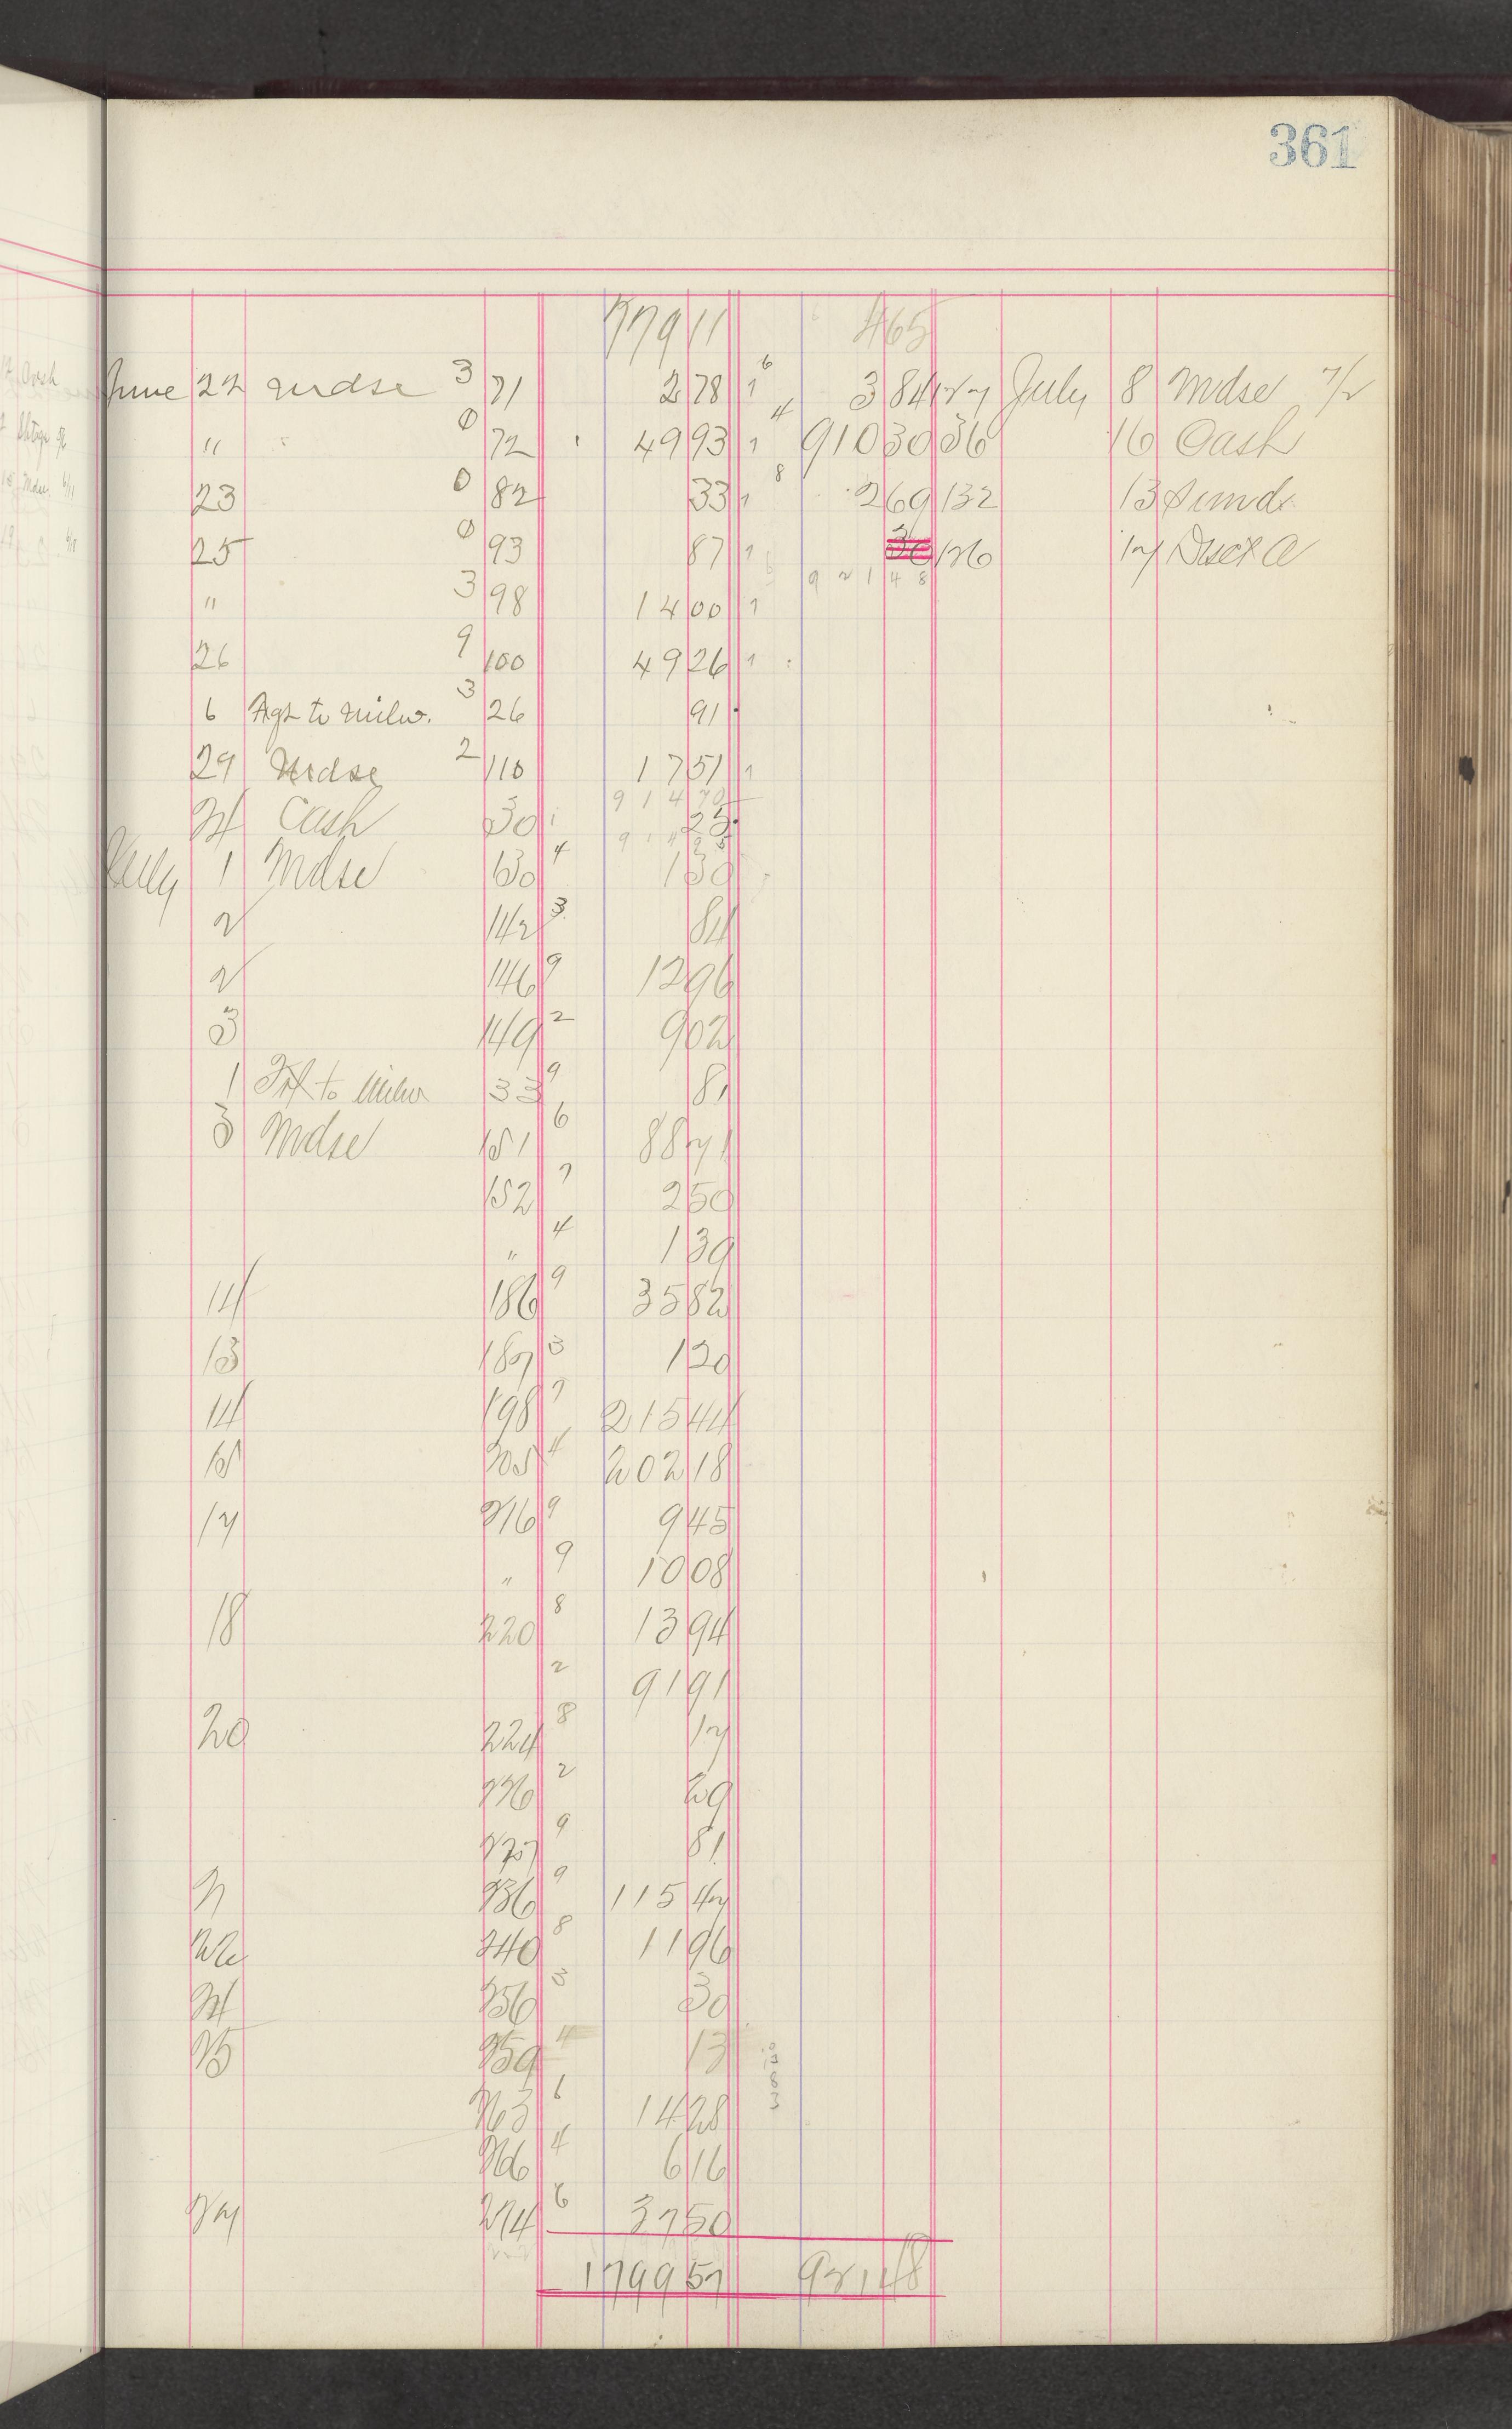 361
779 11 465
June 22 mdse 3 71 2 78 1 6 3 84 127 July 8 Mdse 7/2
" 0 72 49 93 1 4 910 30 36 16 Cash
23 0 82 33 1 8 2 69 132 13 Sund
25 0 93 87 1 36 126 17 Disct a
9 2 1 4 8
" 3 98 14 00 1
26 9 100 49 26 1
6 Agt to Milw. 3 26 91
29 Mdse 2 110 17 51 1
9 1 4 70
24 Cash 30 25
July 1 Mdse 130 4 1 30
2 142 3 84
2 146 9 12 96
3 149 2 9 02
1 Frt to Milw 33 9 81
3 Mdse 151 6 88 71
152 7 2 50
" 4 1 39
14 186 9 35 82
13 187 3 1 20
14 198 7 215 44
15 205 4 202 18
17 216 9 9 45
" 9 10 08
18 220 8 13 94
2 91 91
20 224 8 17
226 2 29
227 9 81
21 236 9 115 47
22 240 8 11 96
24 256 3 30
25 259 4 13
263 6 14 28
266 4 6 16
27 274 6 37 50
1799 57 921 48